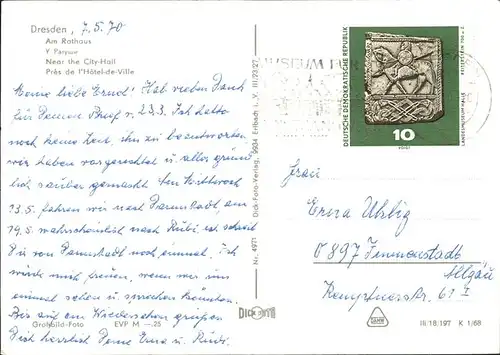 Dresden, 7.5.70
Am Rathaus
У Ратуши
Near the City-Hall
Près de l'Hôtel-de-Ville
Meine liebe Erna! Hab vielen Dank
für Deinen Brief v. 2.3.3. Ich hatte
noch keine Zeit, ihn zu beantworten
wir haben vorgerichtet u. alles gründ
lich sauber gemacht. Am Mittwoch
13.5. fahren wir nach Darmstadt, am
19.5. wahrscheinlich nach
Dir von Darmstadt noch einmal. Ich
würde mich freuen, wenn wir uns
einmal sehen u. sprechen könnten.
Bis auf ein Wiedersehen grüßen
Dich herzlich Deine Erna u. Rudi.
Großbild-Foto EVP M —.25
Nr. 4971 Dick-Foto-Verlag, 9934 Erlbach i. V. III/23/27
DICK FOTO
MUSEUM FÜR
DEUTSCHE DEMOKRATISCHE REPUBLIK
REITERSTEIN 700 u. Z.
LANDESMUSEUM HALLE
10
VOIGT
Frau
Erna Uhlig
0897 Immenstadt
Allgäu
Kemptnerstr. 61 I
III/18/197 K 1/68